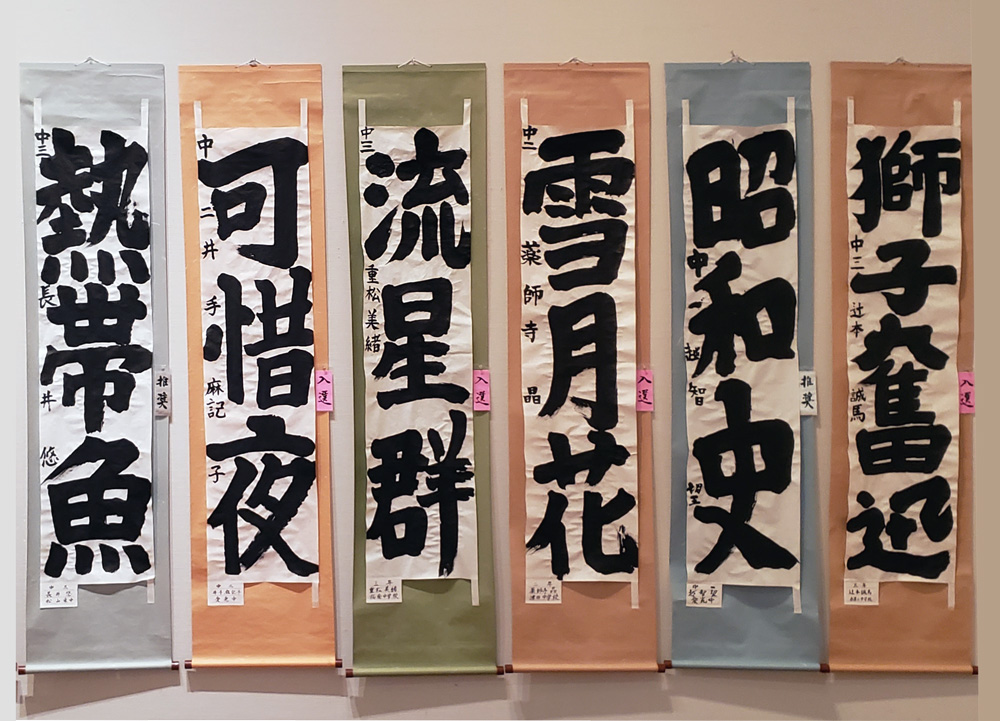 獅子奮迅
中三 辻本 誠馬
入選
昭和史
中 越智 望
推奨
雪月花
中二 薬師寺 晶
入選
流星群
中三 重松 美緒
入選
可惜夜
中二 井手 麻記子
入選
熱帯魚
中三 長井 悠
推奨